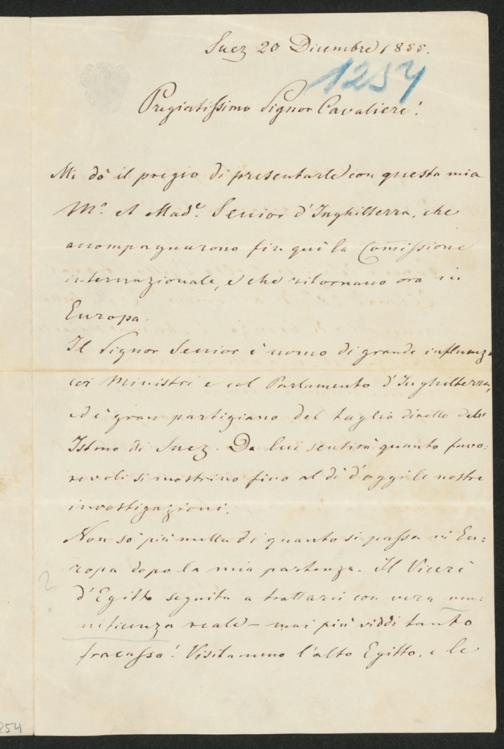 Suez 20 Dicembre 1855.
1254
Pregiatissimo Signor Cavaliere!
Mi dò il pregio di presentarle con questa mia
Mr. & Made. Senior d'Inghilterra, che
accompagnarono fin quì la Comissione
internazionale, e che ritornano ora in
Europa.
Il Signor Senior è uomo di grande influenza
coi Ministri e col Parlamento d'Inghilterra,
ed è gran partigiano del taglio diretto dell'
Istmo di Suez. Da lui sentirà quanto favo=
revoli si mostrino fino al dì d'oggi le nostre
investigazioni.
Non so più nulla di quanto si passa in Eu=
ropa dopo la mia partenza. Il Vicerè
d'Egitto seguita a trattarci con vera mu=
nificenza reale – mai più viddi tanto
fracasso! Visitammo l'alto Egitto, e le
?
254